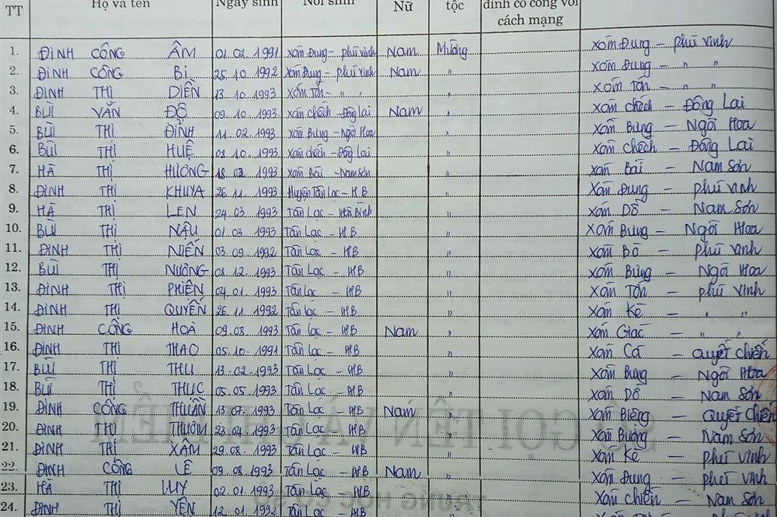 TT Họ và tên Ngày sinh Nơi sinh Nữ tộc đình có công với cách mạng
1. ĐINH CÔNG ÂM 01.02.1991 Xóm Đung - phú vinh Nam Mường Xóm Đung - phú vinh
2. ĐINH CÔNG Bi 25.10.1992 Xóm Đung - phú vinh Nam " Xóm Đung - " "
3. ĐINH THỊ DIỄN 13.10.1993 Xóm Tớn - " " " Xóm Tớn - " "
4. BÙI VĂN ĐỘ 09.10.1993 Xóm chếch - Đông Lai Nam " Xóm chếch - Đông Lai
5. BÙI THỊ ĐỊNH 11.02.1993 Xóm Bưng - Ngõi Hoa " Xóm Bưng - Ngõi Hoa
6. BÙI THỊ HUỆ 08.10.1993 Xóm chếch - Đông Lai " Xóm chếch - Đông Lai
7. HÀ THỊ HƯƠNG 18.03.1993 Xóm Bái - Nam Sơn " Xóm Bái - Nam Sơn
8. ĐINH THỊ KHUYA 26.11.1993 Huyện Tân Lạc - HB " Xóm Đung - phú vinh
9. HÀ THỊ LEN 24.03.1993 Tân Lạc - Hòa Bình " Xóm Dồ - Nam Sơn
10. BÙI THỊ NẬU 01.03.1993 Tân Lạc - HB " Xóm Bưng - Ngõi Hoa
11. ĐINH THỊ NIÊN 03.09.1992 Tân Lạc - HB " Xóm Bò - phú vinh
12. BÙI THỊ NƯƠNG 01.12.1993 Tân Lạc - HB " Xóm Bưng - Ngõi Hoa
13. ĐINH THỊ PHIÊN 04.01.1993 Tân Lạc - HB " Xóm Tớn - phú vinh
14. ĐINH THỊ QUYẾN 26.11.1992 Tân Lạc - HB " Xóm Kè - " "
15. ĐINH CÔNG HOÀ 09.03.1993 Tân Lạc - HB Nam " Xóm Giác - " "
16. ĐINH THỊ THAO 05.10.1991 Tân Lạc - HB " Xóm Cá - Quyết chiến
17. BÙI THỊ THU 13.02.1993 Tân Lạc - HB " Xóm Bưng - Ngõi Hoa
18. BÙI THỊ THỤC 05.05.1993 Tân Lạc - HB " Xóm Dồ - Nam Sơn
19. ĐINH CÔNG THUẦN 13.07.1993 Tân Lạc - HB Nam " Xóm Biêng - Quyết Chiến
20. ĐINH THỊ 1993 Tân Lạc - HB " Xóm - Nam Sơn
21. ĐINH THỊ XÂM 29.08.1993 Tân Lạc - HB " Xóm Kè - phú vinh
22. ĐINH CÔNG LÊ 09.08.1993 Tân Lạc - HB Nam " Xóm Đung - phú vinh
23. HÀ THỊ UY 02.01.1993 Tân Lạc - HB " Xóm chiến - Nam Sơn
24. ĐINH THỊ YÊN 12.01.1992 Tân Lạc - HB "